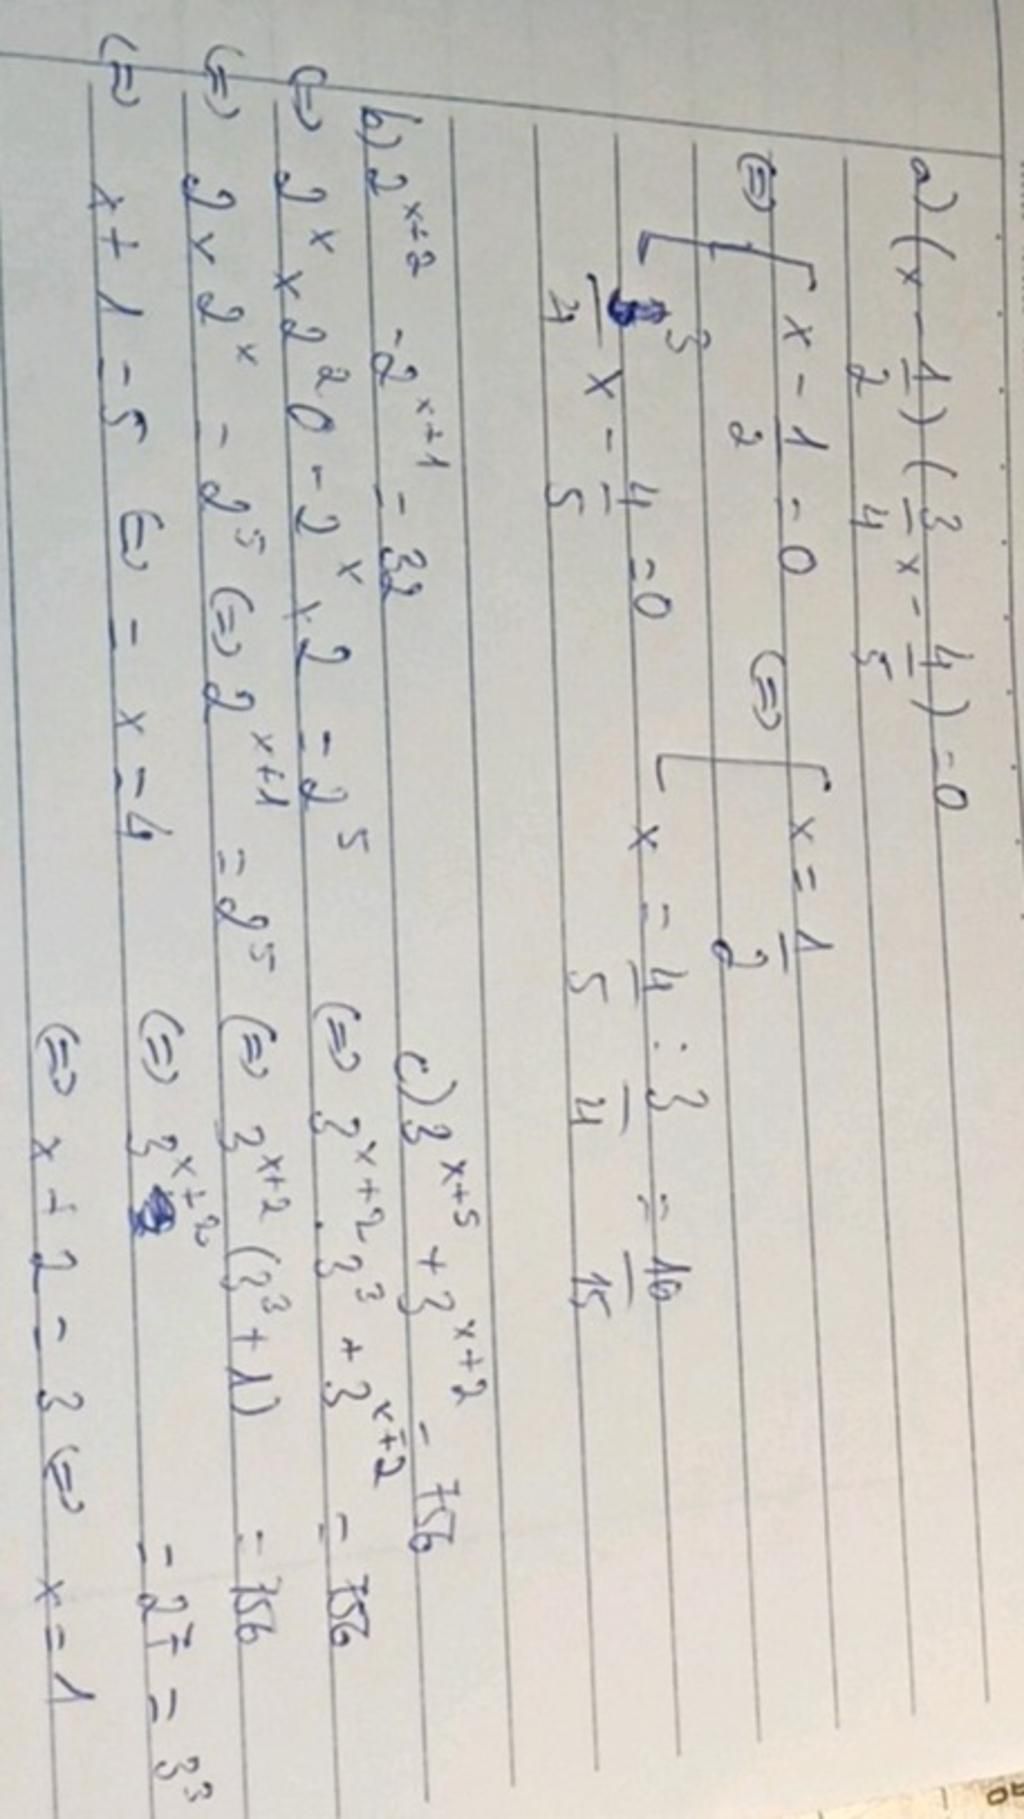 a) (x - 1/2) (3/4 x - 4/5) = 0
(=) [ x - 1/2 = 0 (=) [ x = 1/2
3/4 x - 4/5 = 0 x = 4/5 : 3/4 = 16/15
b) 2^x+2 - 2^x+1 = 32
(=) 2^x x 2^2 0 - 2^x x 2 = 2^5
(=) 2 x 2^x = 2^5 (=) 2^x+1 = 2^5
(=) x + 1 = 5 (=) = x = 4
c) 3^x+5 + 3^x+2 = 756
(=) 3^x+2 . 3^3 + 3^x+2 = 756
(=) 3^x+2 (3^3 + 1) = 756
(=) 3^x+2 = 27 = 3^3
(=) x + 2 = 3 (=) x = 1